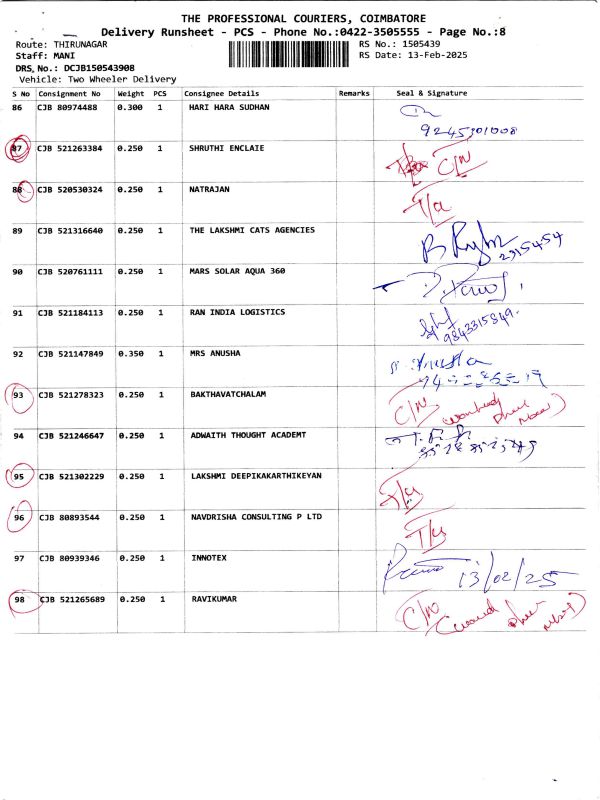 THE PROFESSIONAL COURIERS, COIMBATORE
Delivery Runsheet - PCS - Phone No.:0422-3505555 - Page No.:8
Route: THIRUNAGAR
RS No.: 1505439
Staff: MANI
RS Date: 13-Feb-2025
DRS, No.: DCJB150543908
Vehicle: Two Wheeler Delivery
S No Consignment No Weight PCS Consignee Details Remarks Seal & Signature
86 CJB 80974488 0.300 1 HARI HARA SUDHAN
9245301008
87 CJB 521263384 0.250 1 SHRUTHI ENCLAIE C/N
88 CJB 520530324 0.250 1 NATRAJAN
89 CJB 521316640 0.250 1 THE LAKSHMI CATS AGENCIES
2315454
90 CJB 520761111 0.250 1 MARS SOLAR AQUA 360
91 CJB 521184113 0.250 1 RAN INDIA LOGISTICS
9843315849
92 CJB 521147849 0.350 1 MRS ANUSHA
93 CJB 521278323 0.250 1 BAKTHAVATCHALAM C/N
94 CJB 521246647 0.250 1 ADWAITH THOUGHT ACADEMT
95 CJB 521302229 0.250 1 LAKSHMI DEEPIKAKARTHIKEYAN
96 CJB 80893544 0.250 1 NAVDRISHA CONSULTING P LTD
97 CJB 80939346 0.250 1 INNOTEX 13/02/25
98 CJB 521265689 0.250 1 RAVIKUMAR C/N